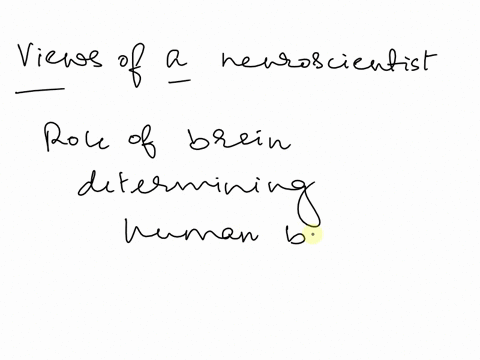 Views of a neuroscientist
Role of brein
determining
human b